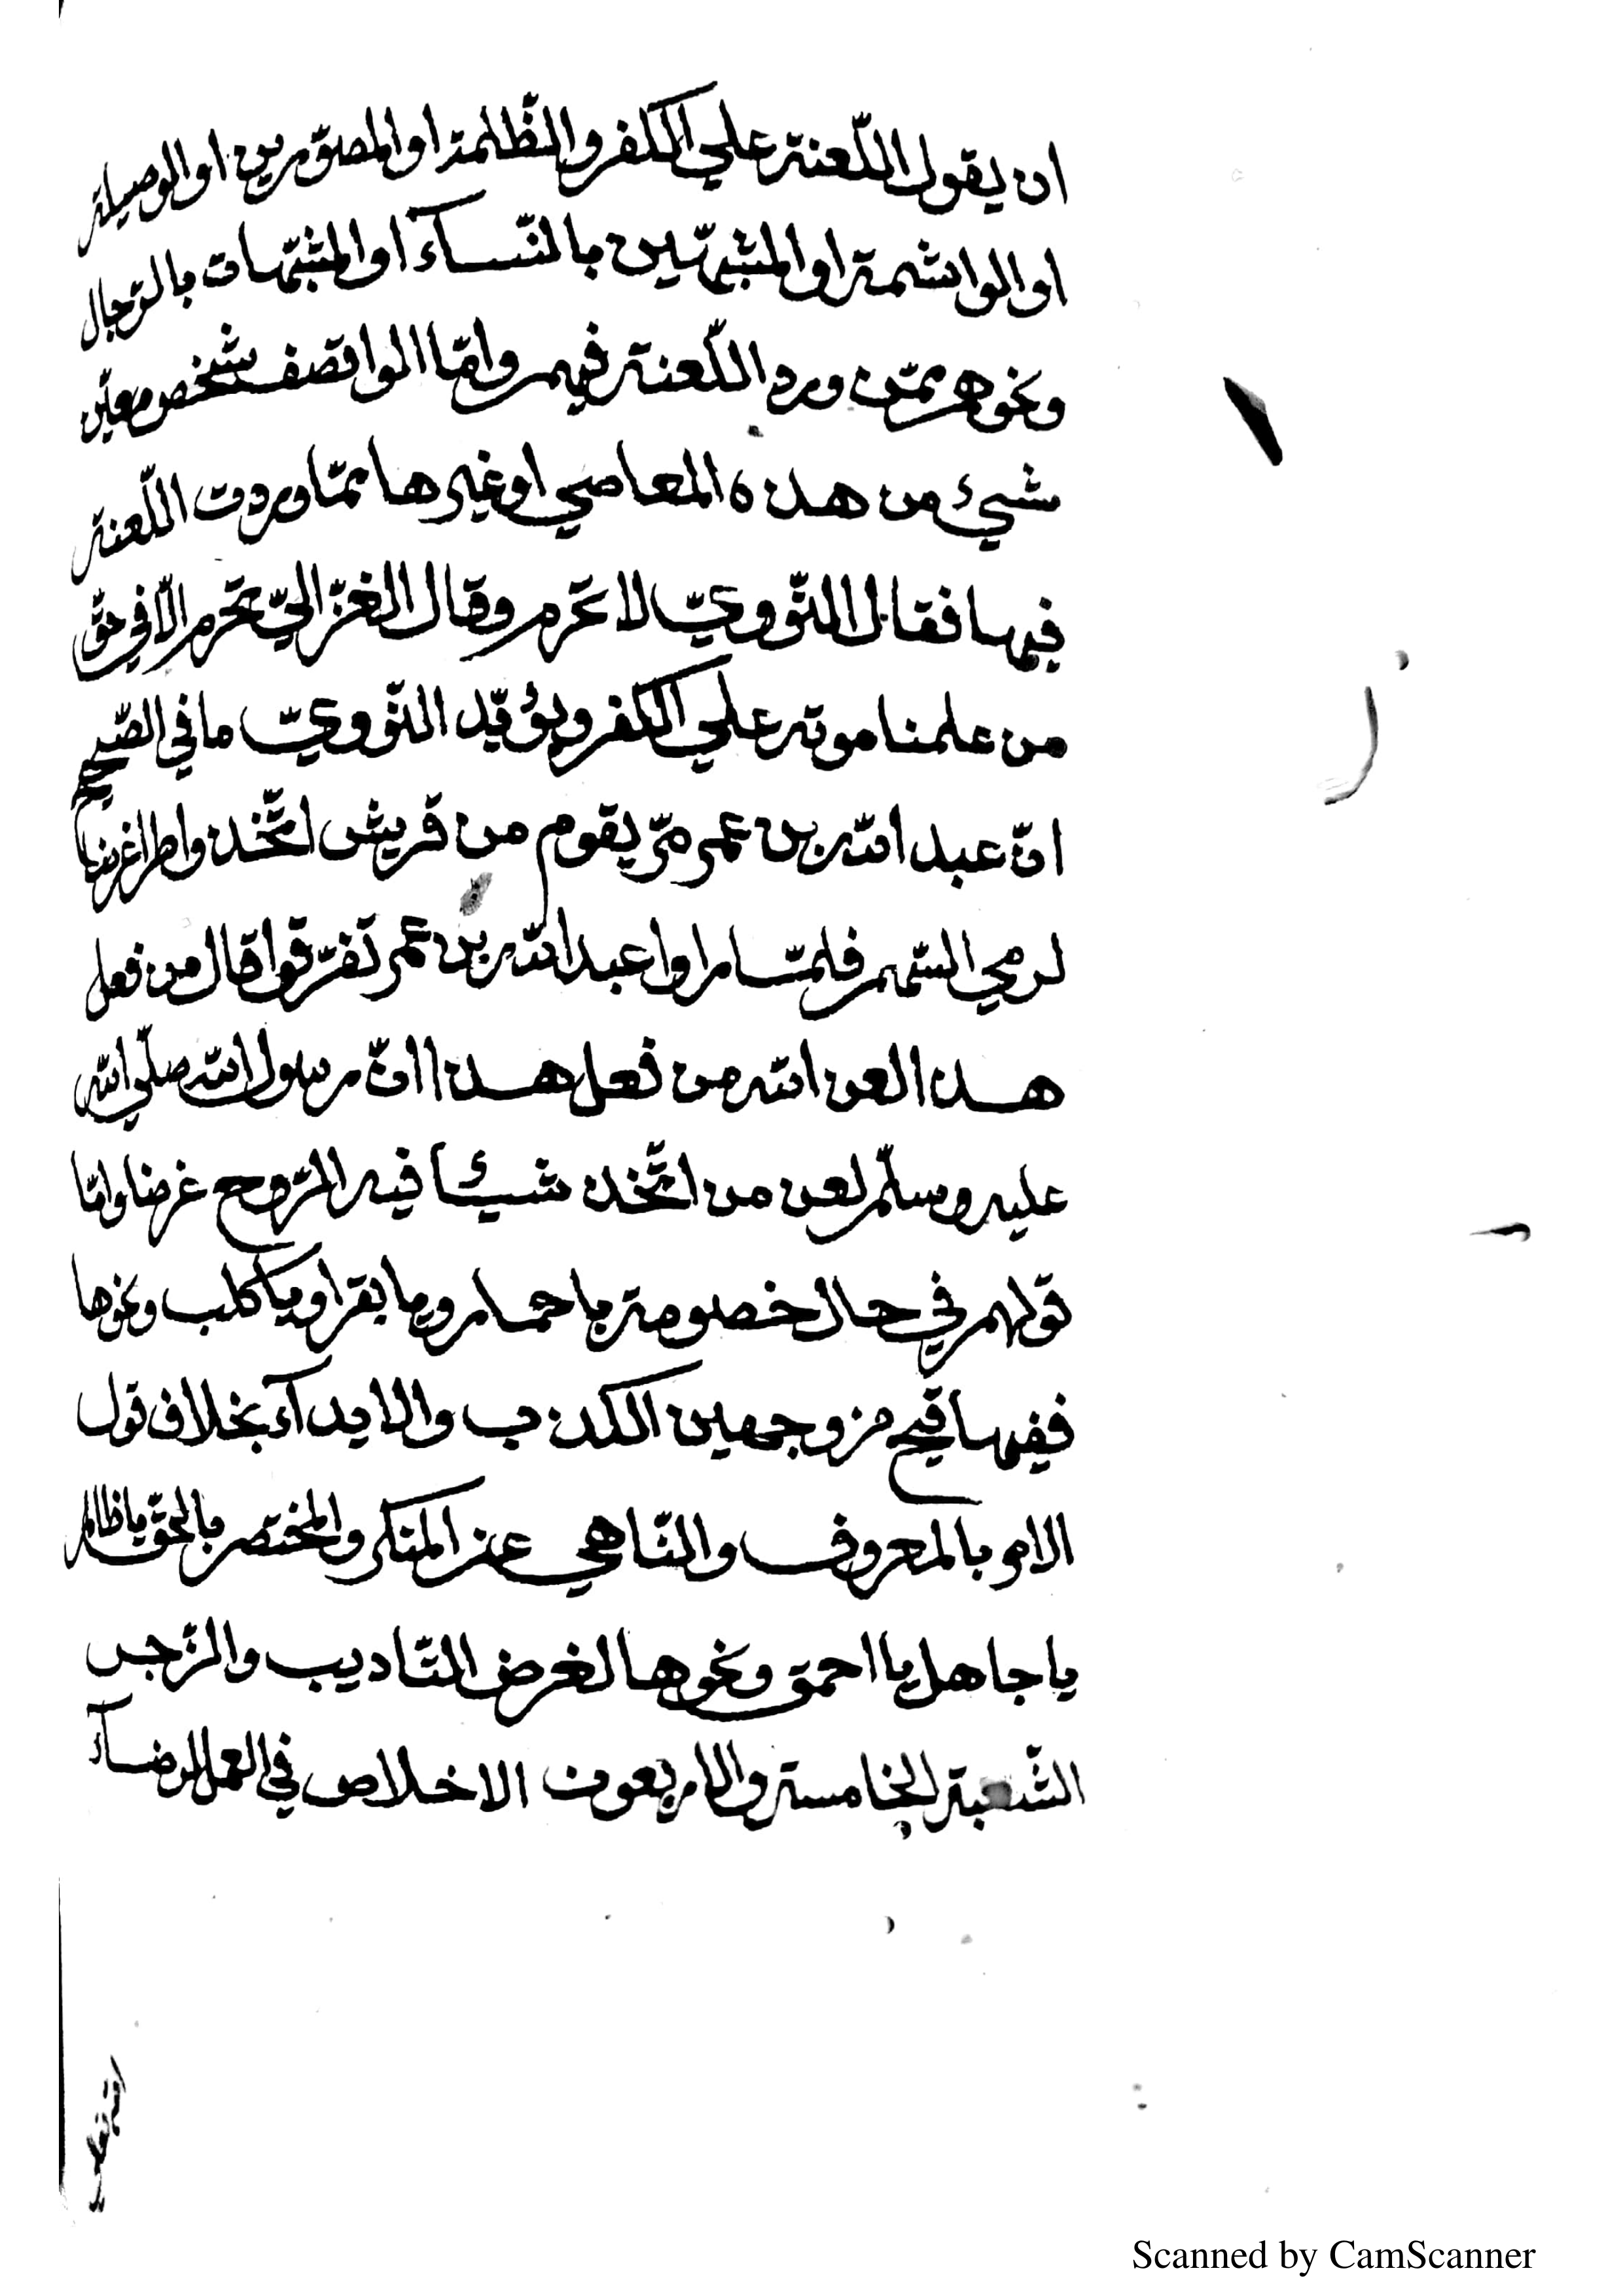 ان يقول اللّعنة علي الكفر والظّلمة او المصوّرين او الوصيلة
او الواشمة او المتشبّهين بالنّسآء او المتشبّهات بالرّجال
ونحوهم ممّن ورد اللّعنة فيهم وامّا الواقصف شخص معيّن
شيئ من هذه المعاصي او غيرها ممّا وردت اللّعنة
فيها فقال النّوويّ لا تحرم وقال الغزّاليّ تحرم الّا في حقّ
من علمنا موته علي الكفر ويؤيّد النّوويّ ما في الصّحيح
انّ عبد اللّه بن عمر مرّ بقوم من قريش اتّخذوا طيرا غرضا
لرمي السّهم فلمّا راوا عبد اللّه بن عمر تفرّقوا قال من فعل
هذا لعن اللّه من فعل هذا انّ رسول اللّه صلّي اللّه
عليه وسلّم لعن من اتّخذ شيئا فيه الرّوح غرضا وامّا
قولهم في حال خصومة يا حمار ويا بقر او يا كلب ونحوها
ففيها قبح من وجهين الكذب والايذآء بخلاف قول
الامر بالمعروف والنّاهي عن المنكر والمختصر بالحقّ يا ظالم
يا جاهل يا احمق ونحوها لغرض التّاديب والزّجر
الشّعبة الخامسة والاربعون الاخلاص في العمل لرضآء
Scanned by CamScanner